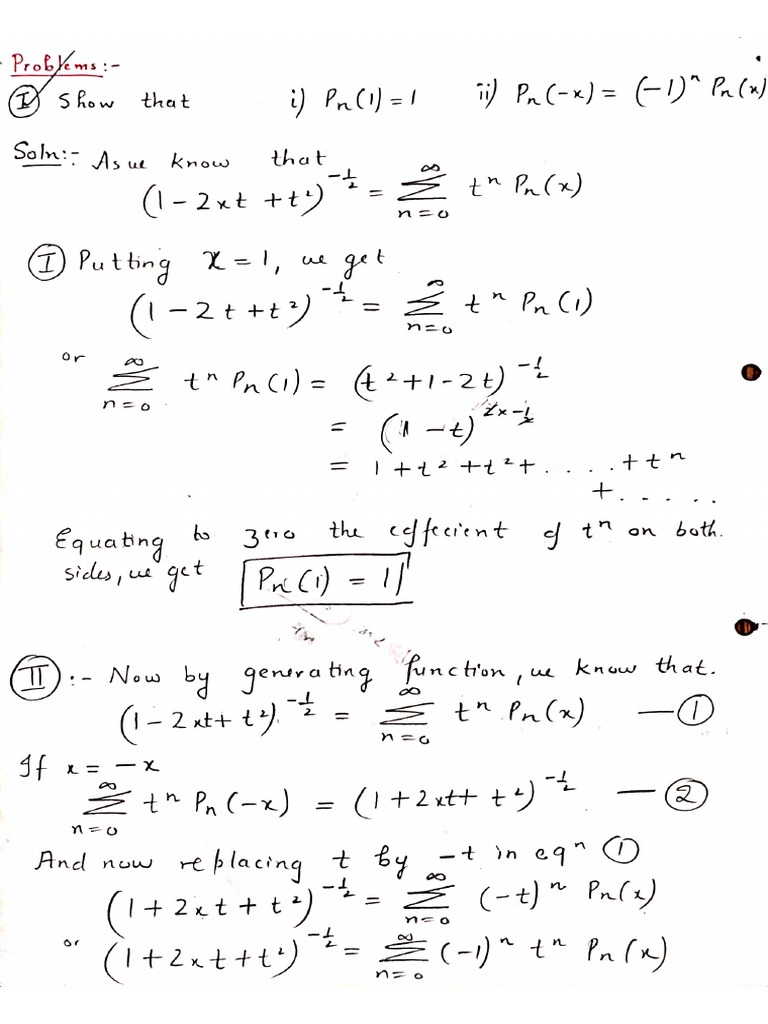 Problems:-
(I) Show that i) Pn(1) = 1 ii) Pn(-x) = (-1)^n Pn(x)
Soln:- As we know that
(1 - 2xt + t²)^{-1/2} = ∑_{n=0}^{∞} t^n Pn(x)
(I) Putting x = 1, we get
(1 - 2t + t²)^{-1/2} = ∑_{n=0}^{∞} t^n Pn(1)
or ∑_{n=0}^{∞} t^n Pn(1) = (t² + 1 - 2t)^{-1/2}
= (1 - t)^{2x-1/2}
= 1 + t² + t² + . . . . . + t^n
+ . . . . .
Equating to zero the cofficient of t^n on both.
sides, we get Pn(1) = 1
(II) :- Now by generating function, we know that.
(1 - 2xt + t²)^{-1/2} = ∑_{n=0}^{∞} t^n Pn(x) — (1)
If x = -x
∑_{n=0}^{∞} t^n Pn(-x) = (1 + 2xt + t²)^{-1/2} — (2)
And now replacing t by -t in eq^n (1)
(1 + 2xt + t²)^{-1/2} = ∑_{n=0}^{∞} (-t)^n Pn(x)
or (1 + 2xt + t²)^{-1/2} = ∑_{n=0}^{∞} (-1)^n t^n Pn(x)